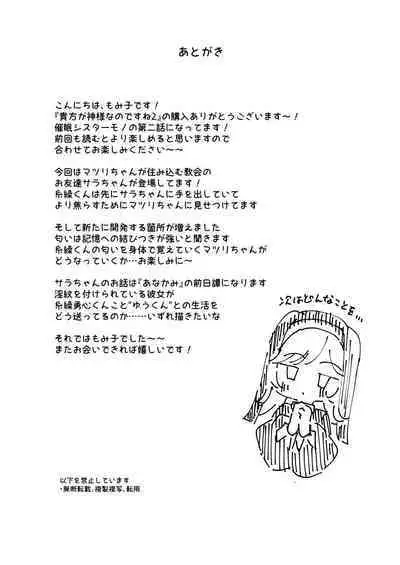 あとがき
こんにちは、もみ子です！
『貴方が神様なのですね2』の購入ありがとうございます～！
催眠シスターモノの第二話になってます！
前回も読むとより楽しめると思いますので
合わせてお楽しみください～～
今回はマツリちゃんが住み込む教会の
お友達サラちゃんが登場してます！
糸績くんは先にサラちゃんに手を出していて
より焦らすためにマツリちゃんに見せつけてます
そして新たに開発する箇所が増えました
匂いは記憶への結びつきが強いと聞きます
糸績くんの匂いを身体で覚えていくマツリちゃんが
どうなっていくか…お楽しみに～
サラちゃんのお話は『あなかみ』の前日譚になります
淫紋を付けられている彼女が
糸績勇心くんこと"ゆうくん"との生活を
どう送ってるのか……いずれ描きたいな
それではもみ子でした～～
またお会いできれば嬉しいです！
次はどんなことを…
以下を禁止しています
・無断転載、複製複写、転用